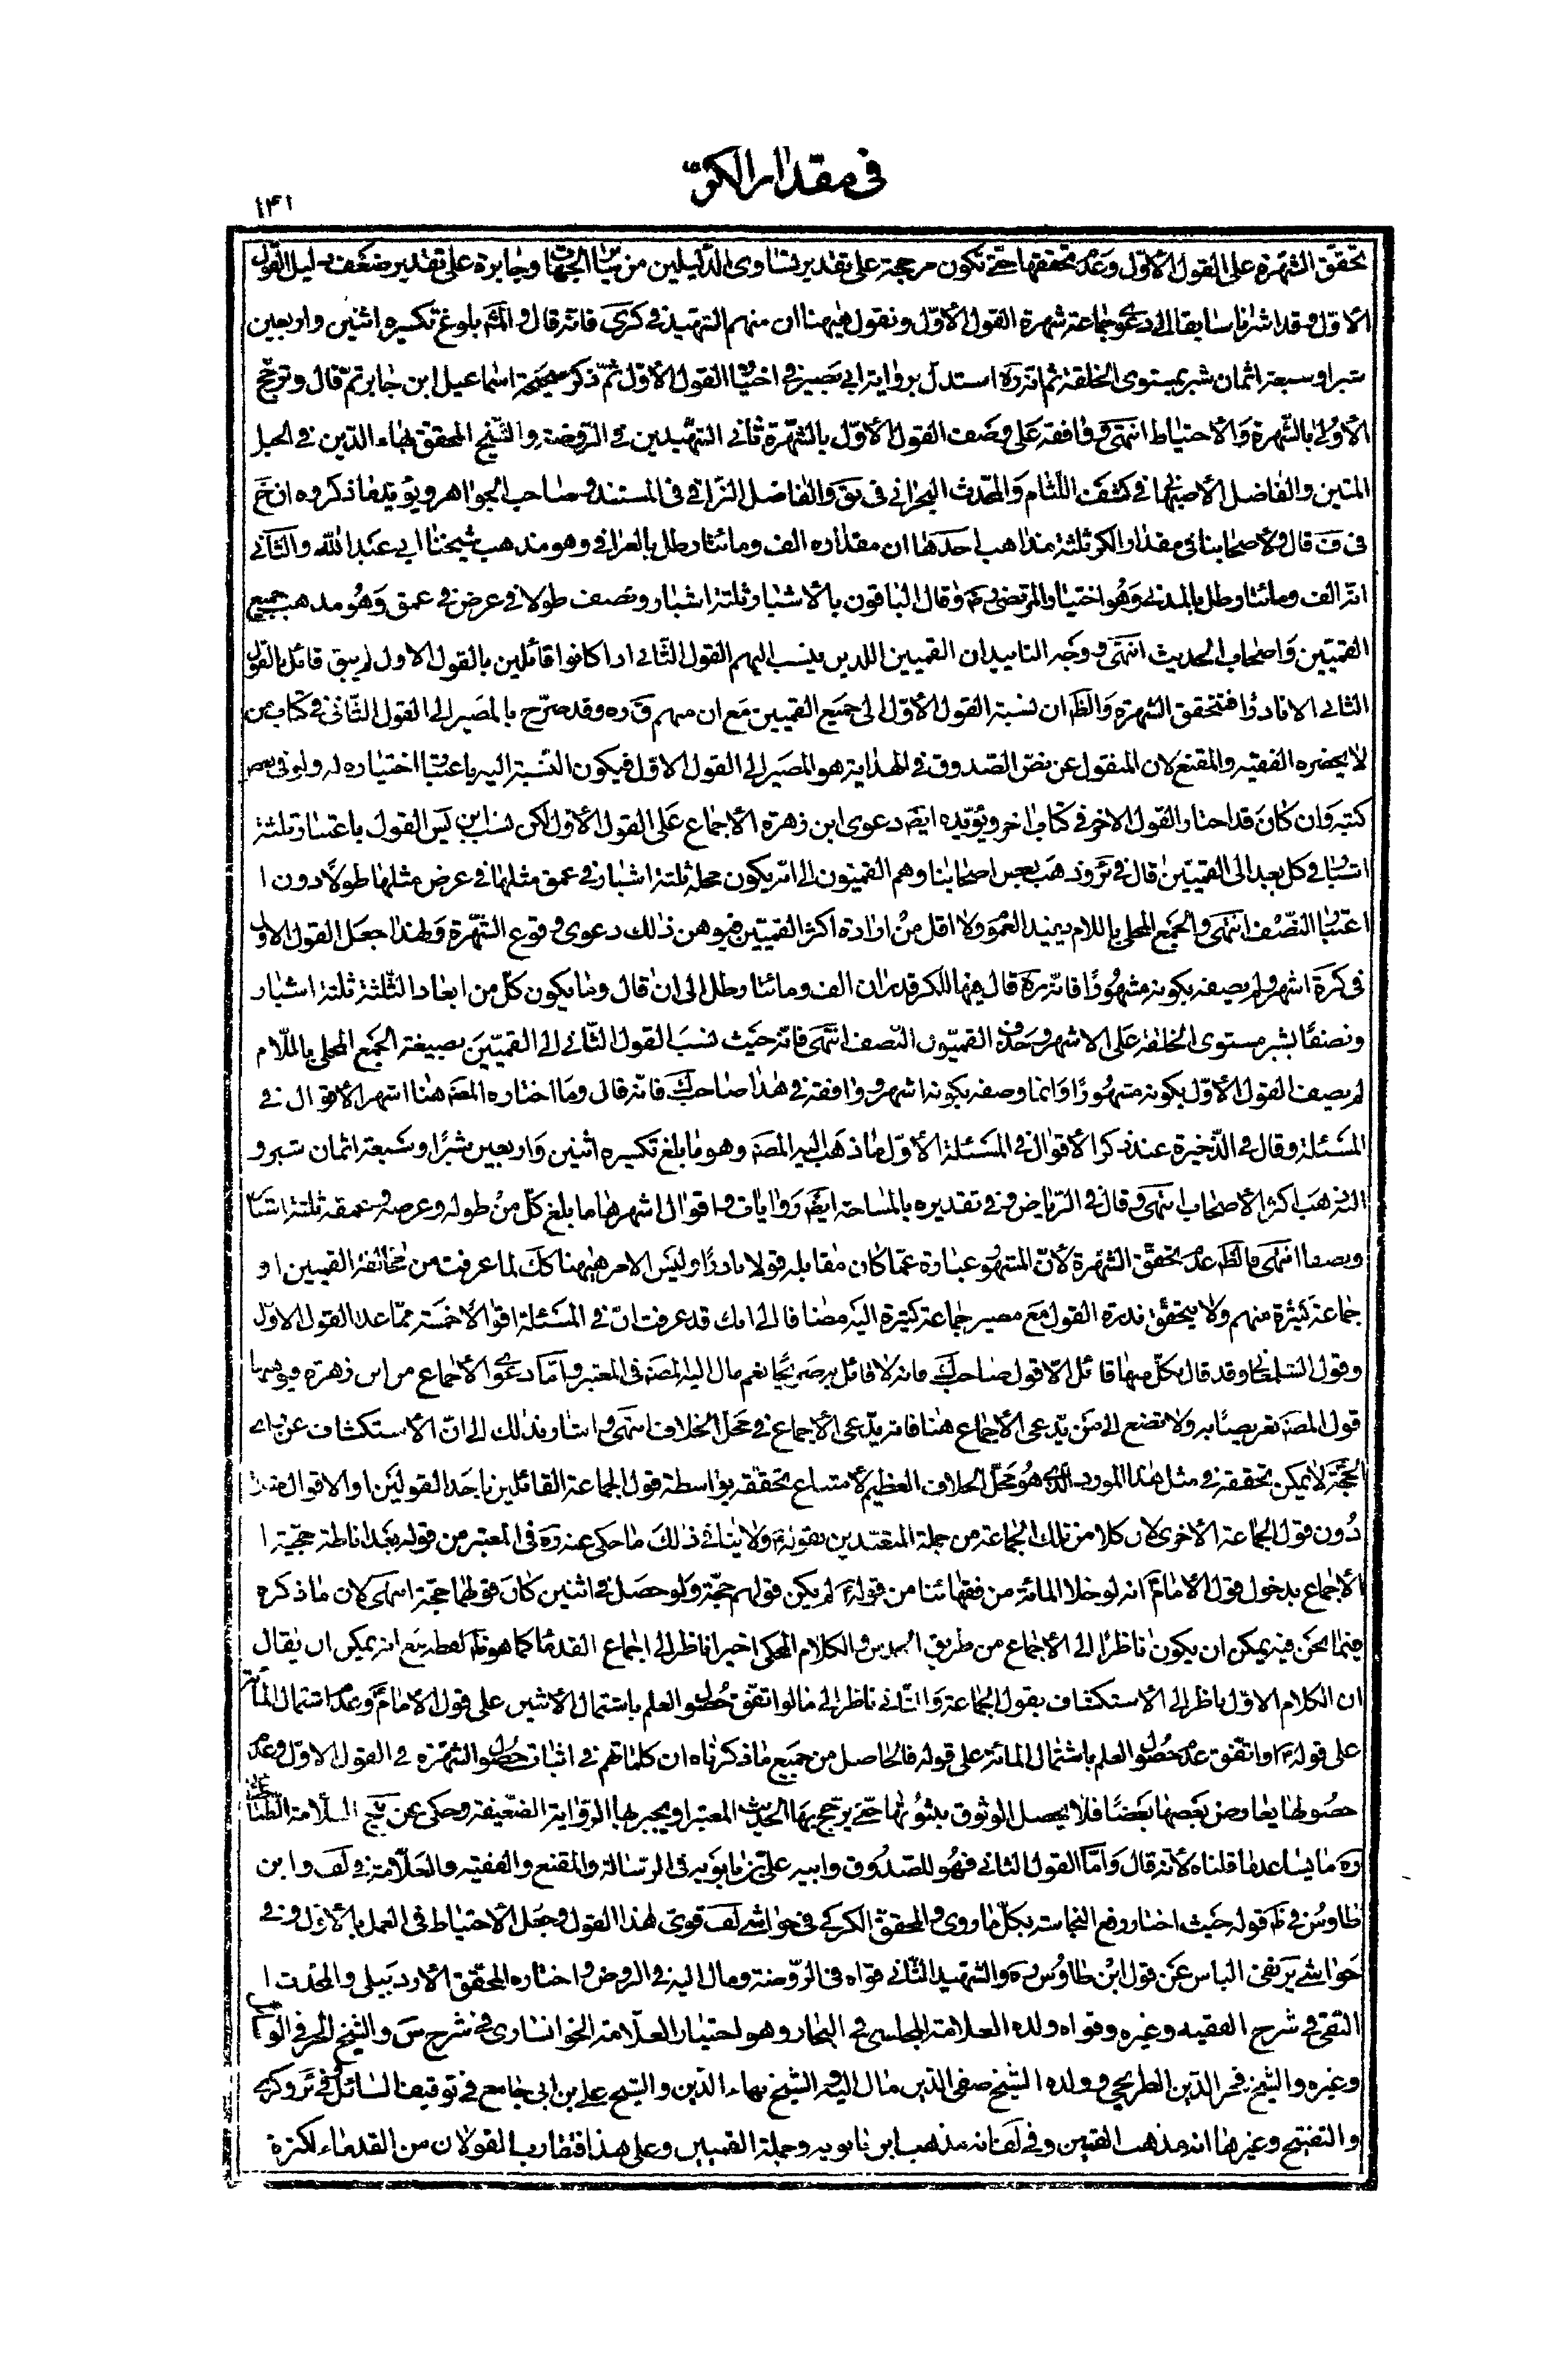 فى مقدار الكرّ
١٤١
تحقق الشهرة على القول الأول وعدم تحققها حتى تكون مرجحة على تقدير تساوى الدليلين من سائر الجهات وجابرة على تقدير ضعف دليل القول
الاول وقد اشرنا سابقا الى دعوى جماعة شهرة القول الأول ونقول هيهنا ان منهم الشهيد فى كرى فانه قال والمشهـ بلوغ تكسيره اثنين واربعين
شبرا وسبعة اثمان شبر بمستوى الخلقة ثم انه ره استدل برواية ابى بصير فى اختيار القول الأول ثم ذكر صحيحة اسماعيل ابن جابر ثم قال وترجح
الأولى بالشهرة والاحتياط انتهى ووافقه على وصف القول الأول بالشهرة ثانى الشهيدين فى الروضة والشيخ المحقق بهاء الدين فى الحبل
المتين والفاضل الأصبهانى فى كشف اللثام والمحدث البحرانى فى ئق والفاضل النراقى فى المستند وصاحب الجواهر ويؤيد ما ذكروه ان خ
فى ف قال ولأصحابنا فى مقدار الكر ثلثة مذاهب احدها ان مقداره الف ومائتا رطل بالعراقى وهو مذهب شيخنا ابى عبد الله والثانى
انه الف ومائتا رطل بالمدنى وهو اختيار المرتضى ره وقال الباقون بالأشبار ثلثة اشبار ونصف طولا فى عرض فى عمق وهو مذهب جميع
القميين واصحاب الحديث انتهى ووجه التاييد ان القميين اللذين ينسب اليهم القول الثانى اذا كانوا قائلين بالقول الاول لم يبق قائل بالقول
الثانى الا نادرا فتحقق الشهرة والظ ان نسبة القول الأول الى جميع القميين مع ان منهم ق ره وقد صرح بالمصير الى القول الثانى فى كتاب من
لا يحضره الفقيه والمقنع لان المنقول عن نص الصدوق فى الهداية هو المصير الى القول الاول فيكون النسبة اليه باعتبار اختياره له ولو فى بعض
كتبه وان كان قد اختار القول الاخر فى كتاب اخر ويؤيده ايضا دعوى ابن زهرة الأجماع على القول الأول لكن نسب ابن ادريس القول باعتبار ثلثة
اشبار فى كل بعد الى القميين قال فى ئر وذهب بعض اصحابنا وهم القميون الى انه يكون محله ثلثة اشبار فى عمق مثلها فى عرض مثلها طولا دون ا
اعتبار النصف انتهى والجمع المحلى باللام يفيد العموم ولا اقل من ارادة اكثر القميين فيوهن ذلك دعوى وقوع الشهرة ولهذا جعل القول الاول
فى كرة اشهر ولم يصفه بكونه مشهورا فانه ره قال فيها للكر قدران الف ومائتا رطل الى ان قال وما يكون كل من ابعاد الثلثة ثلثة اشبار
ونصفا بشبر مستوى الخلقة على الاشهر وحذف القميون النصف انتهى فانه حيث نسب القول الثانى الى القميين بصيغة الجمع المحلى باللام
لم يصف القول الأول بكونه مشهورا وانما وصفه بكونه اشهر ووافقه فى هذا صاحب ك فانه قال وما اختاره المصـ هنا اشهر الأقوال فى
المسئلة وقال فى الذخيرة عند ذكر الأقوال فى المسئلة الأول ما ذهب اليه المصـ وهو ما بلغ تكسيره اثنين واربعين شبرا وسبعة اثمان شبر و
اليه ذهب اكثر الأصحاب انتهى وقال فى الرياض وفى تقديره بالمساحة ايضا روايات واقوال اشهرها ما بلغ كل من طوله وعرضه وعمقه ثلثة اشبار
ونصفا انتهى فالظ عدم تحقق الشهرة لأن المشهور عبارة عما كان مقابله قولا نادرا وليس الامر هيهنا كك لما عرفت من مخالفة القميين او
جماعة كثيرة منهم ولا يتحقق ندرة القول مع مصير جماعة كثيرة اليه مضافا الى انك قد عرفت ان فى المسئلة اقوالا خمسة مما عدا القول الاول
وقول الشلمغانى وقد قال بكل منها قائل الا قول صاحب ك فانه لا قائل به صريحا نعم مال اليه المصـ فى المعتبر واما دعوى الأجماع من ابن زهرة فيوهنها
قول المصـ تعريضا به ولا تصغ الى من يدعى الأجماع هنا فانه يدعى الأجماع فى محل الخلاف انتهى واشار بذلك الى ان الأستكشاف عن راى
الحجة لا يمكن تحققه فى مثل هذا المورد الذى هو محل الخلاف العظيم لأمتناع تحققه بواسطة قول الجماعة القائلين باحد القولين او الاقوال
دون قول الجماعة الأخرى لان كلا من تلك الجماعة من جملة المعتدين بقوله ولا ينافى ذلك ما حكى عنه ره فى المعتبر من قوله بعد اناطة حجية ا
الأجماع بدخول قول الأمام ع انه لو خلا المائة من فقهائنا من قوله ع لم يكن قولهم حجة ولو حصل فى اثنين كان قولهما حجة انتهى لان ما ذكره
فيما نحن فيه يمكن ان يكون ناظرا الى الأجماع من طريق الحدس والكلام المحكى اخيرا ناظر الى اجماع القدماء كما هو ظ لفظه مع انه يمكن ان يقال
ان الكلام الاول ناظر الى الأستكشاف بقول الجماعة والثانى ناظر الى ما لو اتفق حصول العلم باشتمال الأثنين على قول الأمام ع وعدم اشتمال المائة
على قوله ع او اتفق عدم حصول العلم باشتمال المائة على قوله فالحاصل من جميع ما ذكرناه ان كلماتهم فى اثبات حصول الشهرة فى القول الاول وعدم
حصولها يعارض بعضها بعضا فلا يحصل الوثوق بثبوتها حتى يرجح بها الحديث المعتبر او يجبر بها الرواية الضعيفة وحكى عن شيخ السلامة الطباطبائى
ره ما يساعد ما قلناه لأنه قال واما القول الثانى فهو للصدوق وابيه على بن بابويه فى الرسالة والمقنع والفقيه والعلامة فى لف وابن
طاوس فى ظ قوله حيث اختار رفع النجاسة بكل ما روى والمحقق الكركى فى حواشى لف قوى هذا القول وجعل الأحتياط فى العمل بالأول وفى
حواشى ير نفى الباس عن قول ابن طاوس ره والشهيد الثانى قواه فى الروضة ومال اليه فى الروض واختاره المحقق الأردبيلى والمحدث ا
التقى فى شرح الفقيه وغيره وقواه ولده العلامة المجلسى فى البحار وهو اختيار العلامة الخوانسارى فى شرح س والشيخ الحر فى الوسائل
وغيره والشيخ فخر الدين الطريحى وولده الشيخ صفى الدين مال اليه الشيخ بهاء الدين والشيخ على بن ابى جامع فى توقيف السائل وفى ئر وكرى
والتنقيح وغيرها انه مذهب القميين وفى لف انه مذهب ابن بابويه وجملة القميين وعلى هذا فتقارب القولان من القدماء لكثرة